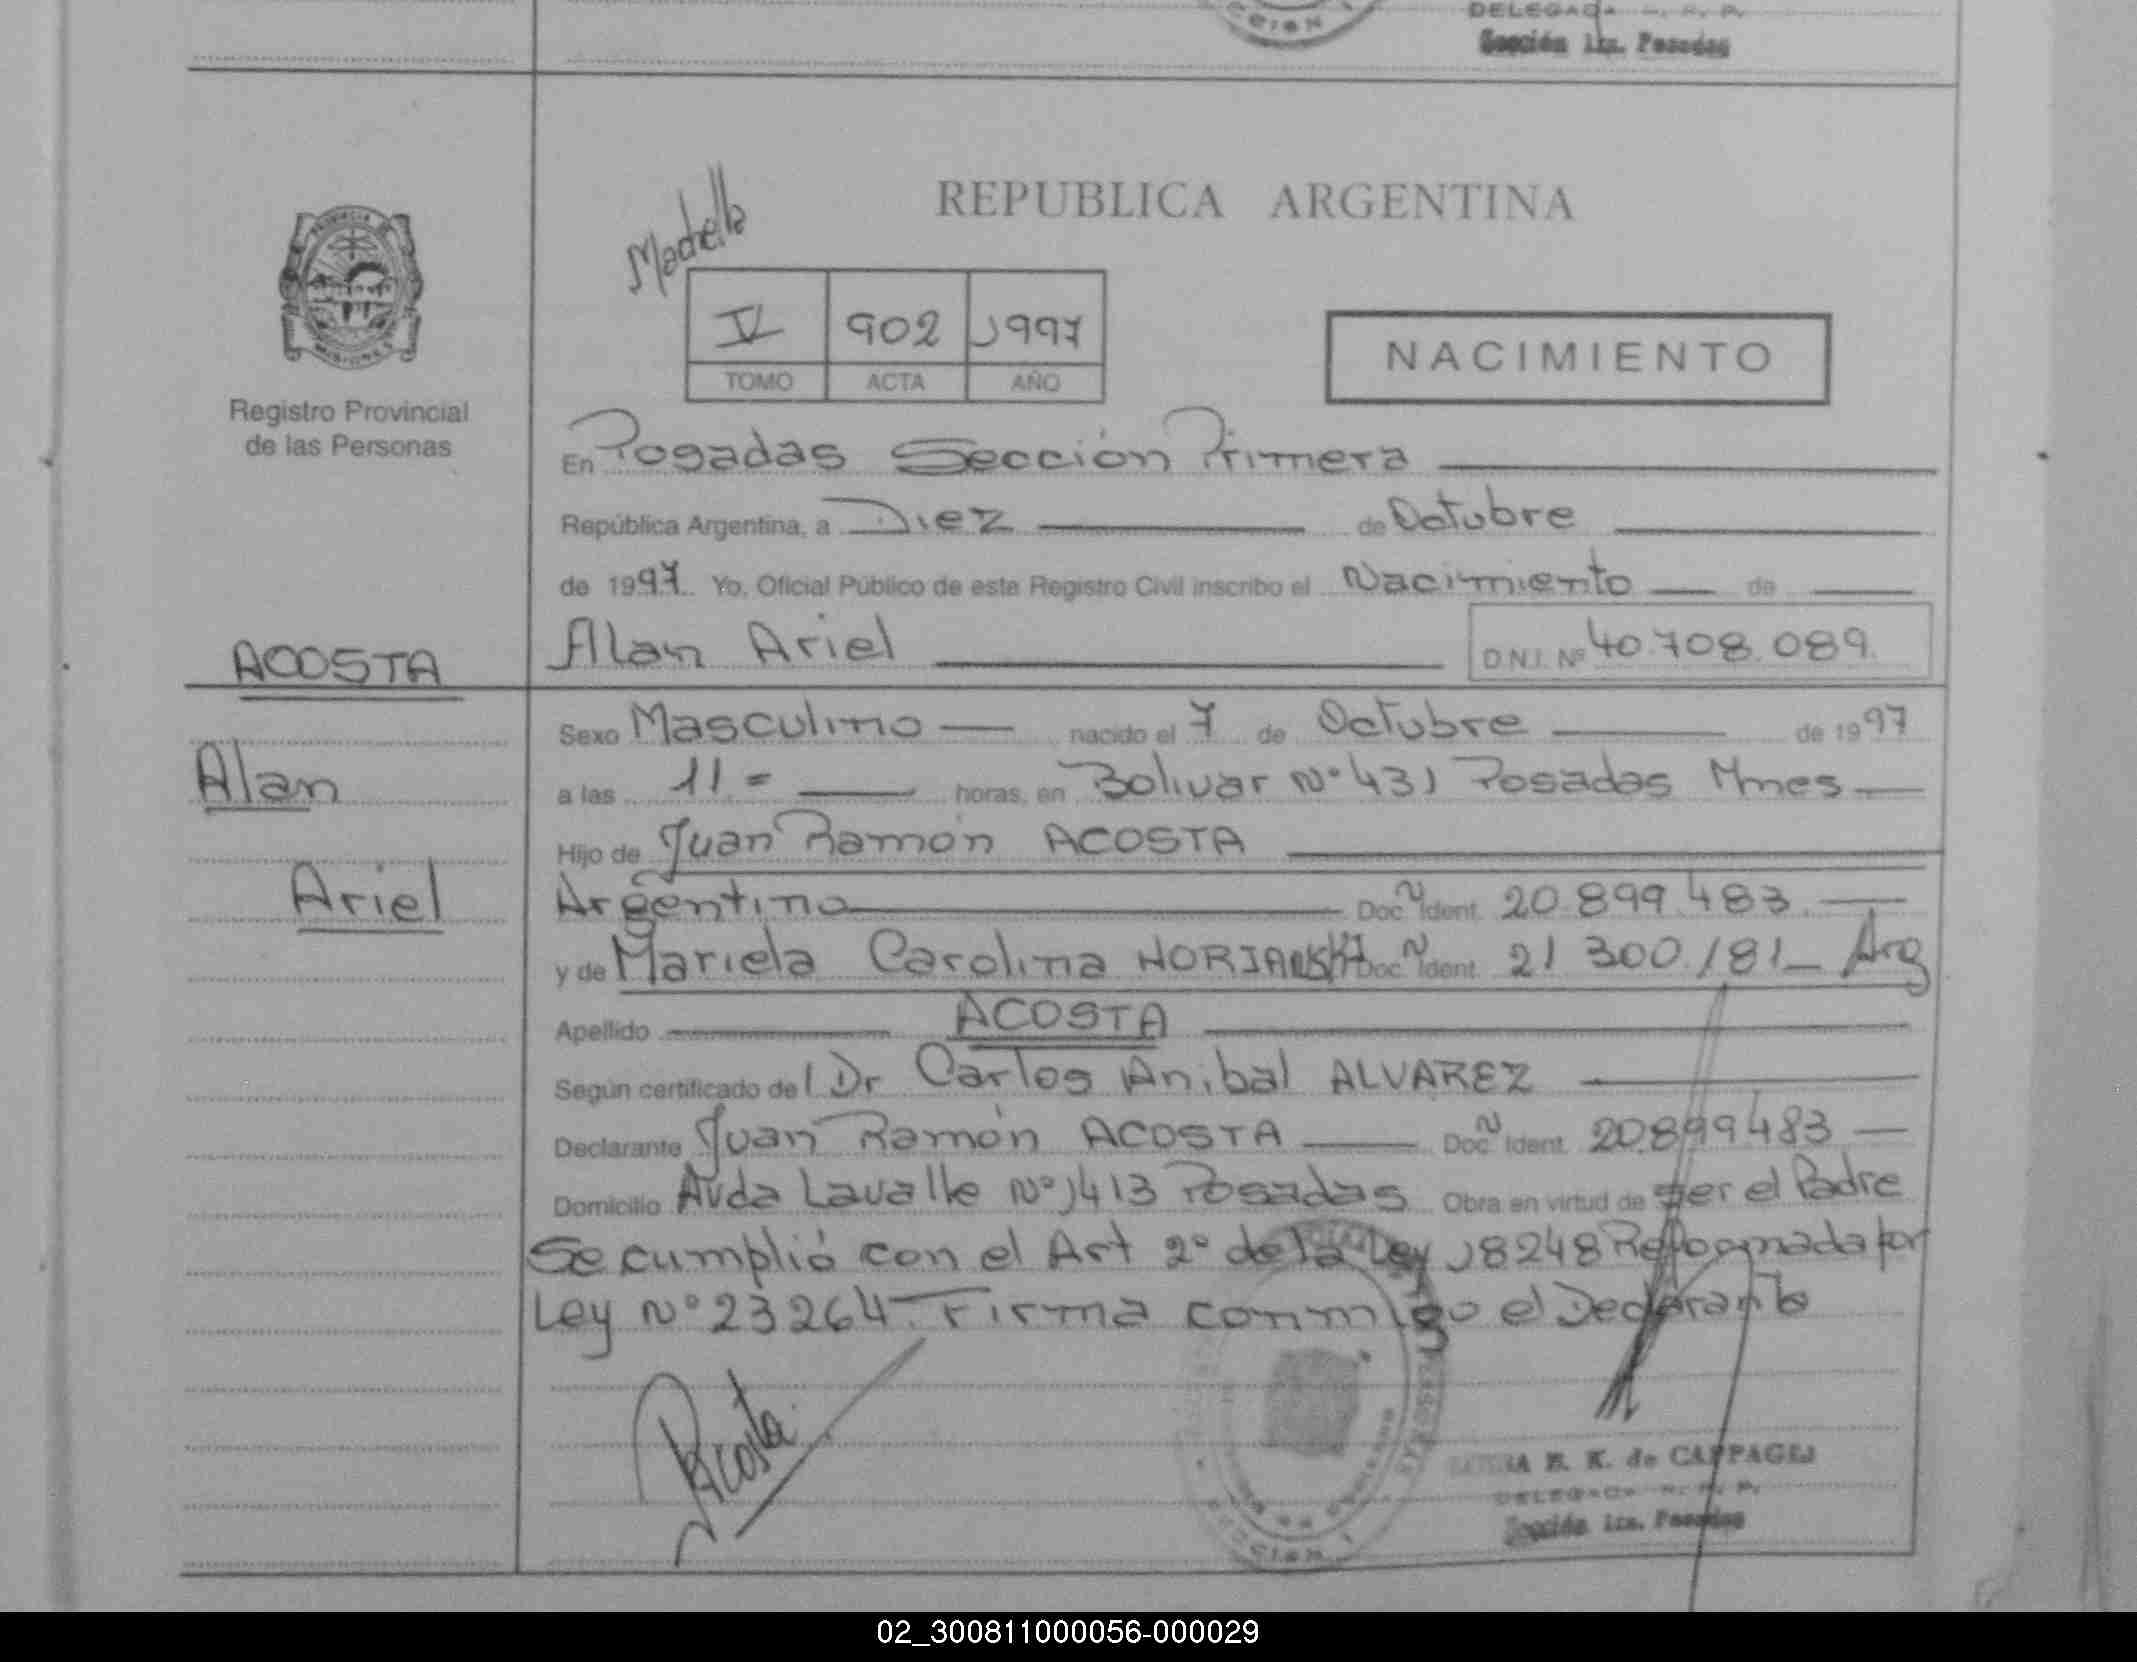 DELEGADA R. P.
Sección 1ra. Posadas
REPUBLICA ARGENTINA
V 902 1997
TOMO ACTA AÑO
NACIMIENTO
Registro Provincial
de las Personas
En Posadas Sección Primera
República Argentina, a Diez de Octubre
de 1997. Yo, Oficial Público de este Registro Civil inscribo el Nacimiento de
ACOSTA
Alan Ariel D.N.I. Nº 40.708.089.
Sexo Masculino nacido el 7 de Octubre de 1997
Alan
a las 11 = horas, en Bolivar Nº 431 Posadas Mnes
Hijo de Juan Ramón ACOSTA
Ariel
Argentino Doc. N Ident. 20.899.483.
y de Mariela Carolina Doc. N Ident. 21 300.181 Arg
Apellido ACOSTA
Según certificado del Dr Carlos Anibal ALVAREZ
Declarante Juan Ramón ACOSTA Doc. N Ident. 20.899483
Domicilio Avda Lavalle Nº 1413 Posadas Obra en virtud de ser el Padre
Se cumplió con el Art 2º de la Ley 18248 Reformada por
Ley Nº 23264. Firma conmigo el Declarante
Acosta
E. K. de
DELEGADA R. P.
Sección 1ra. Posadas
02_300811000056-000029